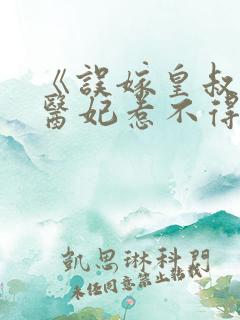 《誤嫁皇叔
醫妃惹不得
凱思琳科門
未經同意禁止轉載